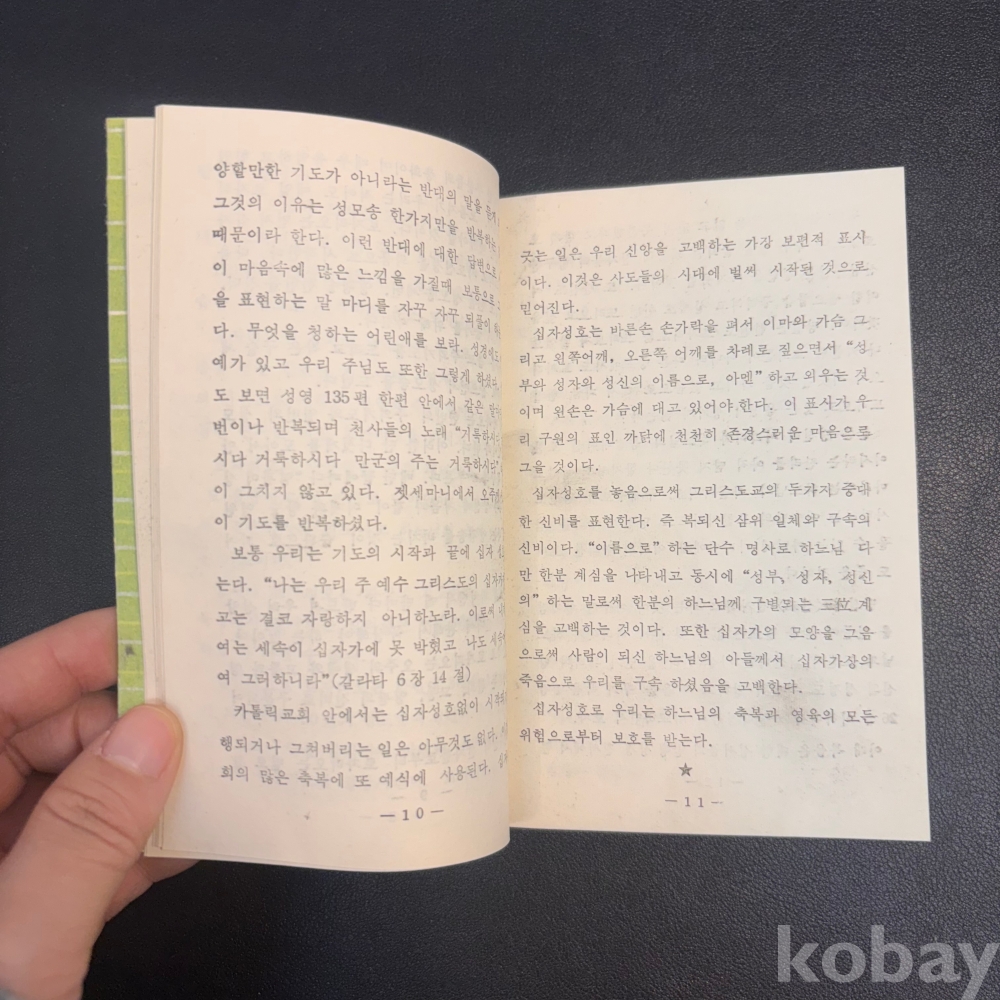 양할만한 기도가 아니라는 반대의 말을
그것의 이유는 성모송 한가지만을 반복하는
때문이라 한다. 이런 반대에 대한 답변으로
이 마음속에 많은 느낌을 가질때 보통으로
을 표현하는 말 마디를 자꾸 자꾸 되풀이
다. 무엇을 청하는 어린애를 보라. 성경에도
예가 있고 우리 주님도 또한 그렇게 하셨다.
도 보면 성영 135편 한편 안에서 같은
번이나 반복되며 천사들의 노래 “거룩하시
시다 거룩하시다 만군의 주는 거룩하시다”
이 그치지 않고 있다. 겟세마니에서 오주
이 기도를 반복하셨다.
보통 우리는 기도의 시작과 끝에 십자
는다. “나는 우리 주 예수 그리스도의 십자가
고는 결코 자랑하지 아니하노라. 이로써
여는 세속이 십자가에 못 박혔고 나도 세속에
여 그러하니라”(갈라타 6장 14절)
카톨릭교회 안에서는 십자성호없이 시작
행되거나 그쳐버리는 일은 아무것도 없다.
회의 많은 축복에 또 예식에 사용된다.
—10—
긋는 일은 우리 신앙을 고백하는 가강 보편적 표시
이다. 이것은 사도들의 시대에 벌써 시작된 것으로
믿어진다.
십자성호는 바른손 손가락을 펴서 이마와 가슴 그
리고 왼쪽어깨, 오른쪽 어깨를 차례로 짚으면서 “성
부와 성자와 성신의 이름으로, 아멘” 하고 외우는 것
이며 왼손은 가슴에 대고 있어야한다. 이 표시가 우
리 구원의 표인 까닭에 천천히 존경스러운 마음으로
그을 것이다.
십자성호를 놓음으로써 그리스도교의 두가지 중대
한 신비를 표현한다. 즉 복되신 삼위 일체와 구속의
신비이다. “이름으로” 하는 단수 명사로 하느님 다
만 한분 계심을 나타내고 동시에 “성부, 성자, 성신
의” 하는 말로써 한분의 하느님께 구별되는 三位 계
심을 고백하는 것이다. 또한 십자가의 모양을 그음
으로써 사람이 되신 하느님의 아들께서 십자가상의
죽음으로 우리를 구속 하셨음을 고백한다.
십자성호로 우리는 하느님의 축복과 영육의 모든
위험으로부터 보호를 받는다.
★
—11—
kobay